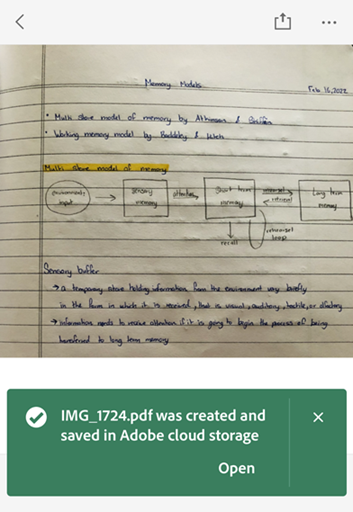 Memory Models
Feb 16, 2022
• Multi store model of memory by Atkinson & Shiffrin
• Working memory model by Baddeley & Hitch
Multi store model of memory
environmental input
sensory memory
attention
Short term memory
retrieval
Long term memory
recall
rehearsal loop
Sensory buffer
→ a temporary store holding information from the environment very briefly
in the form in which it is received, that is visual, auditory, tactile, or olfactory
→ information needs to receive attention if it is going to begin the process of being
transferred to long term memory
IMG_1724.pdf was created and
saved in Adobe cloud storage
Open